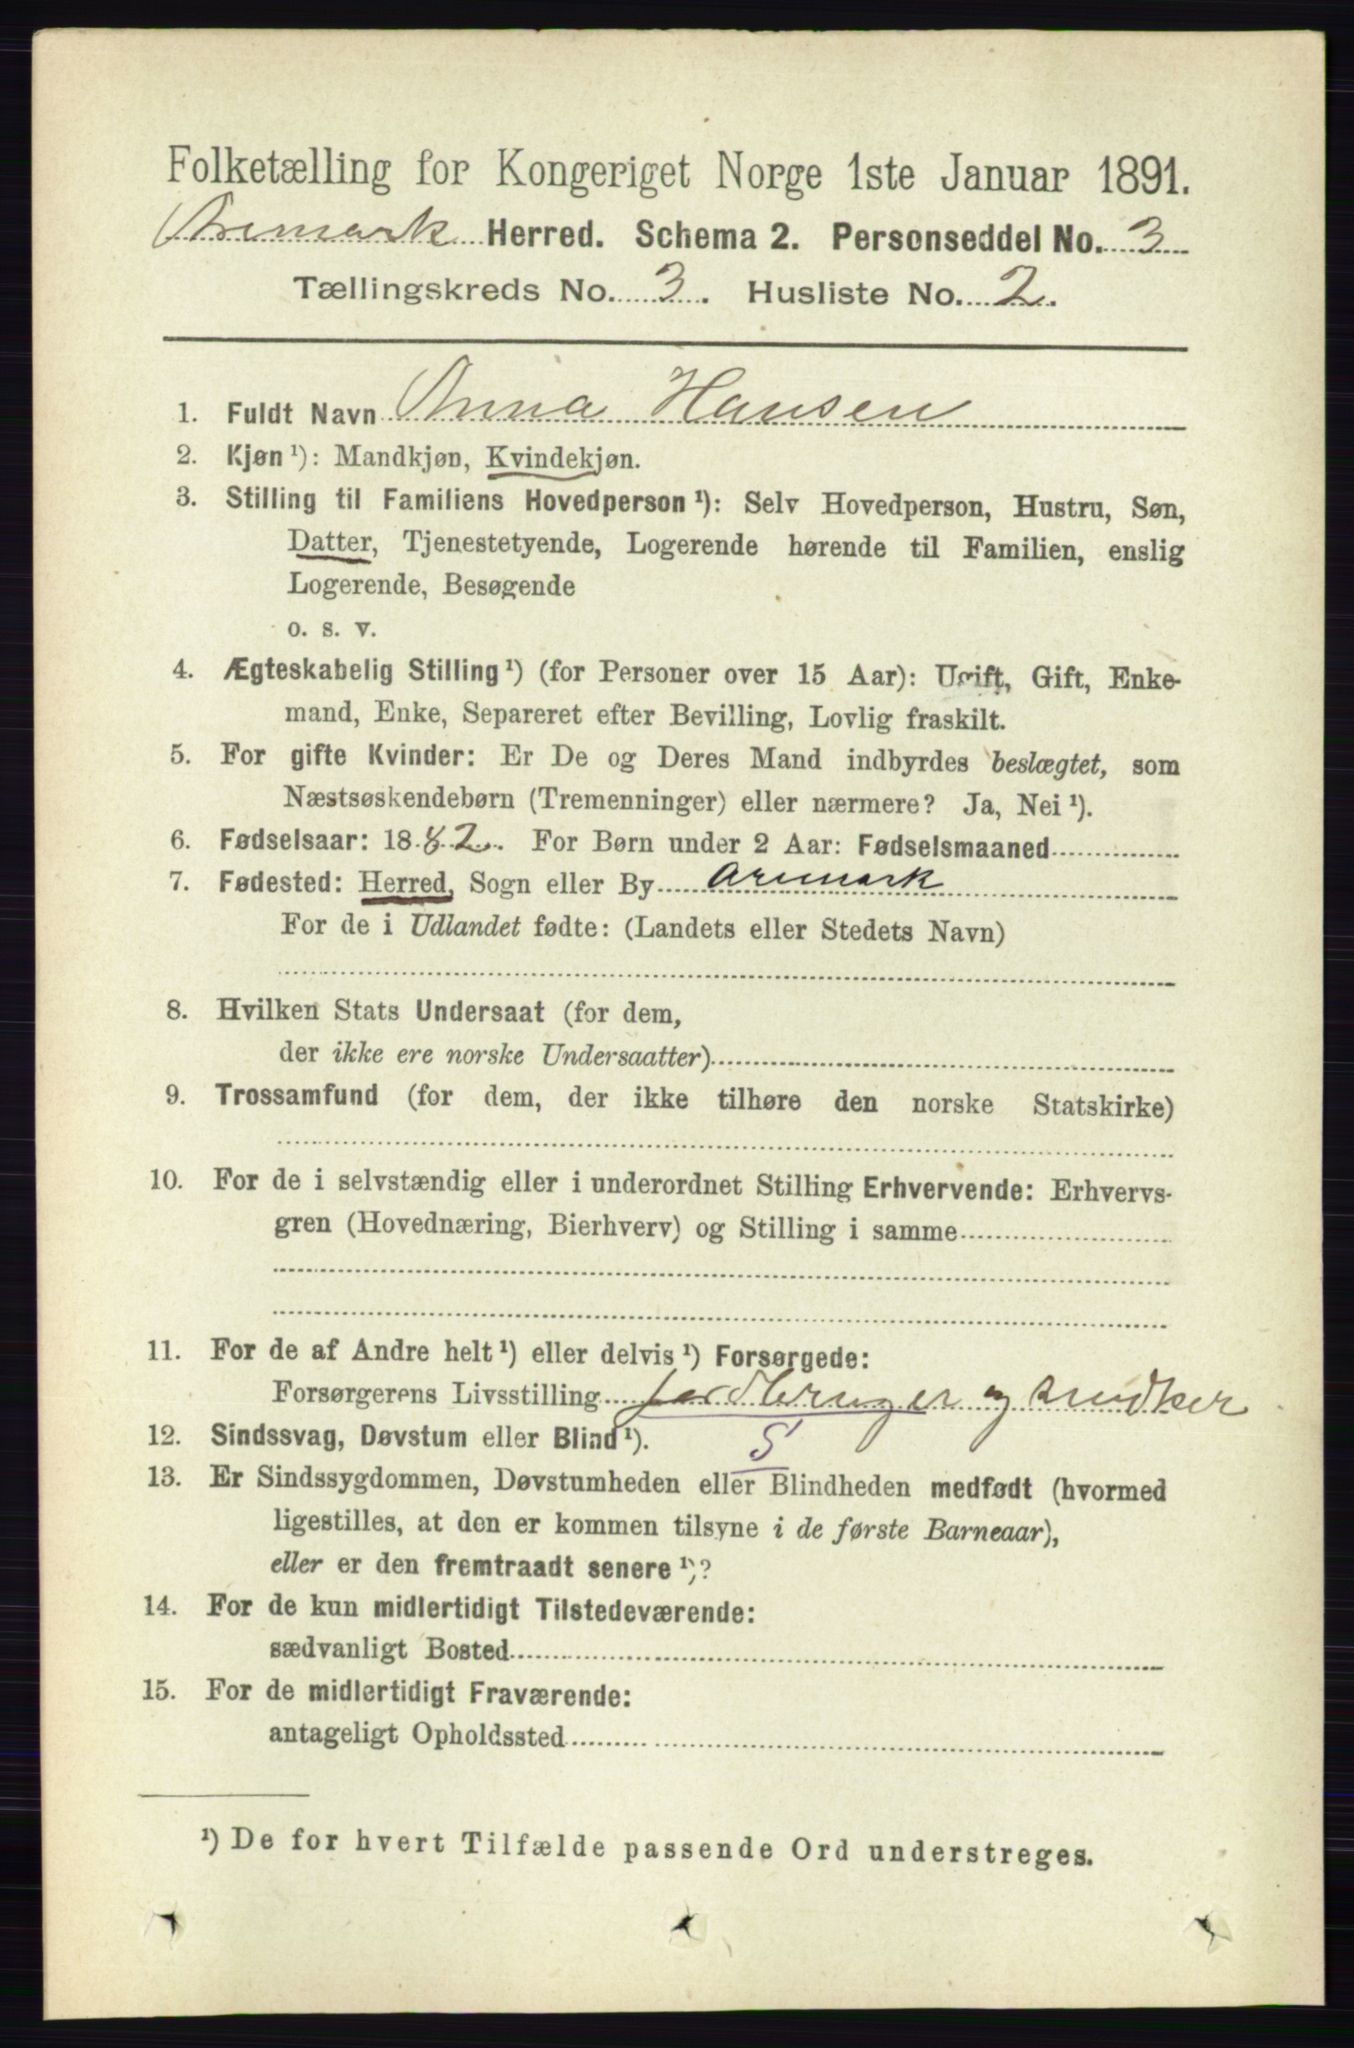 Folketælling for Kongeriget Norge 1ste Januar 1891.
Aremark Herred. Schema 2. Personseddel No. 3
Tællingskreds No. 3. Husliste No. 2.
1. Fuldt Navn Anna Hansen
2. Kjøn¹): Mandkjøn, Kvindekjøn.
3. Stilling til Familiens Hovedperson¹): Selv Hovedperson, Hustru, Søn,
Datter, Tjenestetyende, Logerende hørende til Familien, enslig
Logerende, Besøgende
o. s. v.
4. Ægteskabelig Stilling¹) (for Personer over 15 Aar): Ugift, Gift, Enke-
mand, Enke, Separeret efter Bevilling, Lovlig fraskilt.
5. For gifte Kvinder: Er De og Deres Mand indbyrdes beslægtet, som
Næstsøskendebørn (Tremenninger) eller nærmere? Ja, Nei¹).
6. Fødselsaar: 1882. For Børn under 2 Aar: Fødselsmaaned
7. Fødested: Herred, Sogn eller By Aremark
For de i Udlandet fødte: (Landets eller Stedets Navn)
8. Hvilken Stats Undersaat (for dem,
der ikke ere norske Undersaatter)
9. Trossamfund (for dem, der ikke tilhøre den norske Statskirke)
10. For de i selvstændig eller i underordnet Stilling Erhvervende: Erhvervs-
gren (Hovednæring, Bierhverv) og Stilling i samme
11. For de af Andre helt¹) eller delvis¹) Forsørgede:
Forsørgerens Livsstilling Jordbruger og snedker
12. Sindssvag, Døvstum eller Blind¹). S
13. Er Sindssygdommen, Døvstumheden eller Blindheden medfødt (hvormed
ligestilles, at den er kommen tilsyne i de første Barneaar),
eller er den fremtraadt senere¹)?
14. For de kun midlertidigt Tilstedeværende:
sædvanligt Bosted
15. For de midlertidigt Fraværende:
antageligt Opholdssted
¹) De for hvert Tilfælde passende Ord understreges.